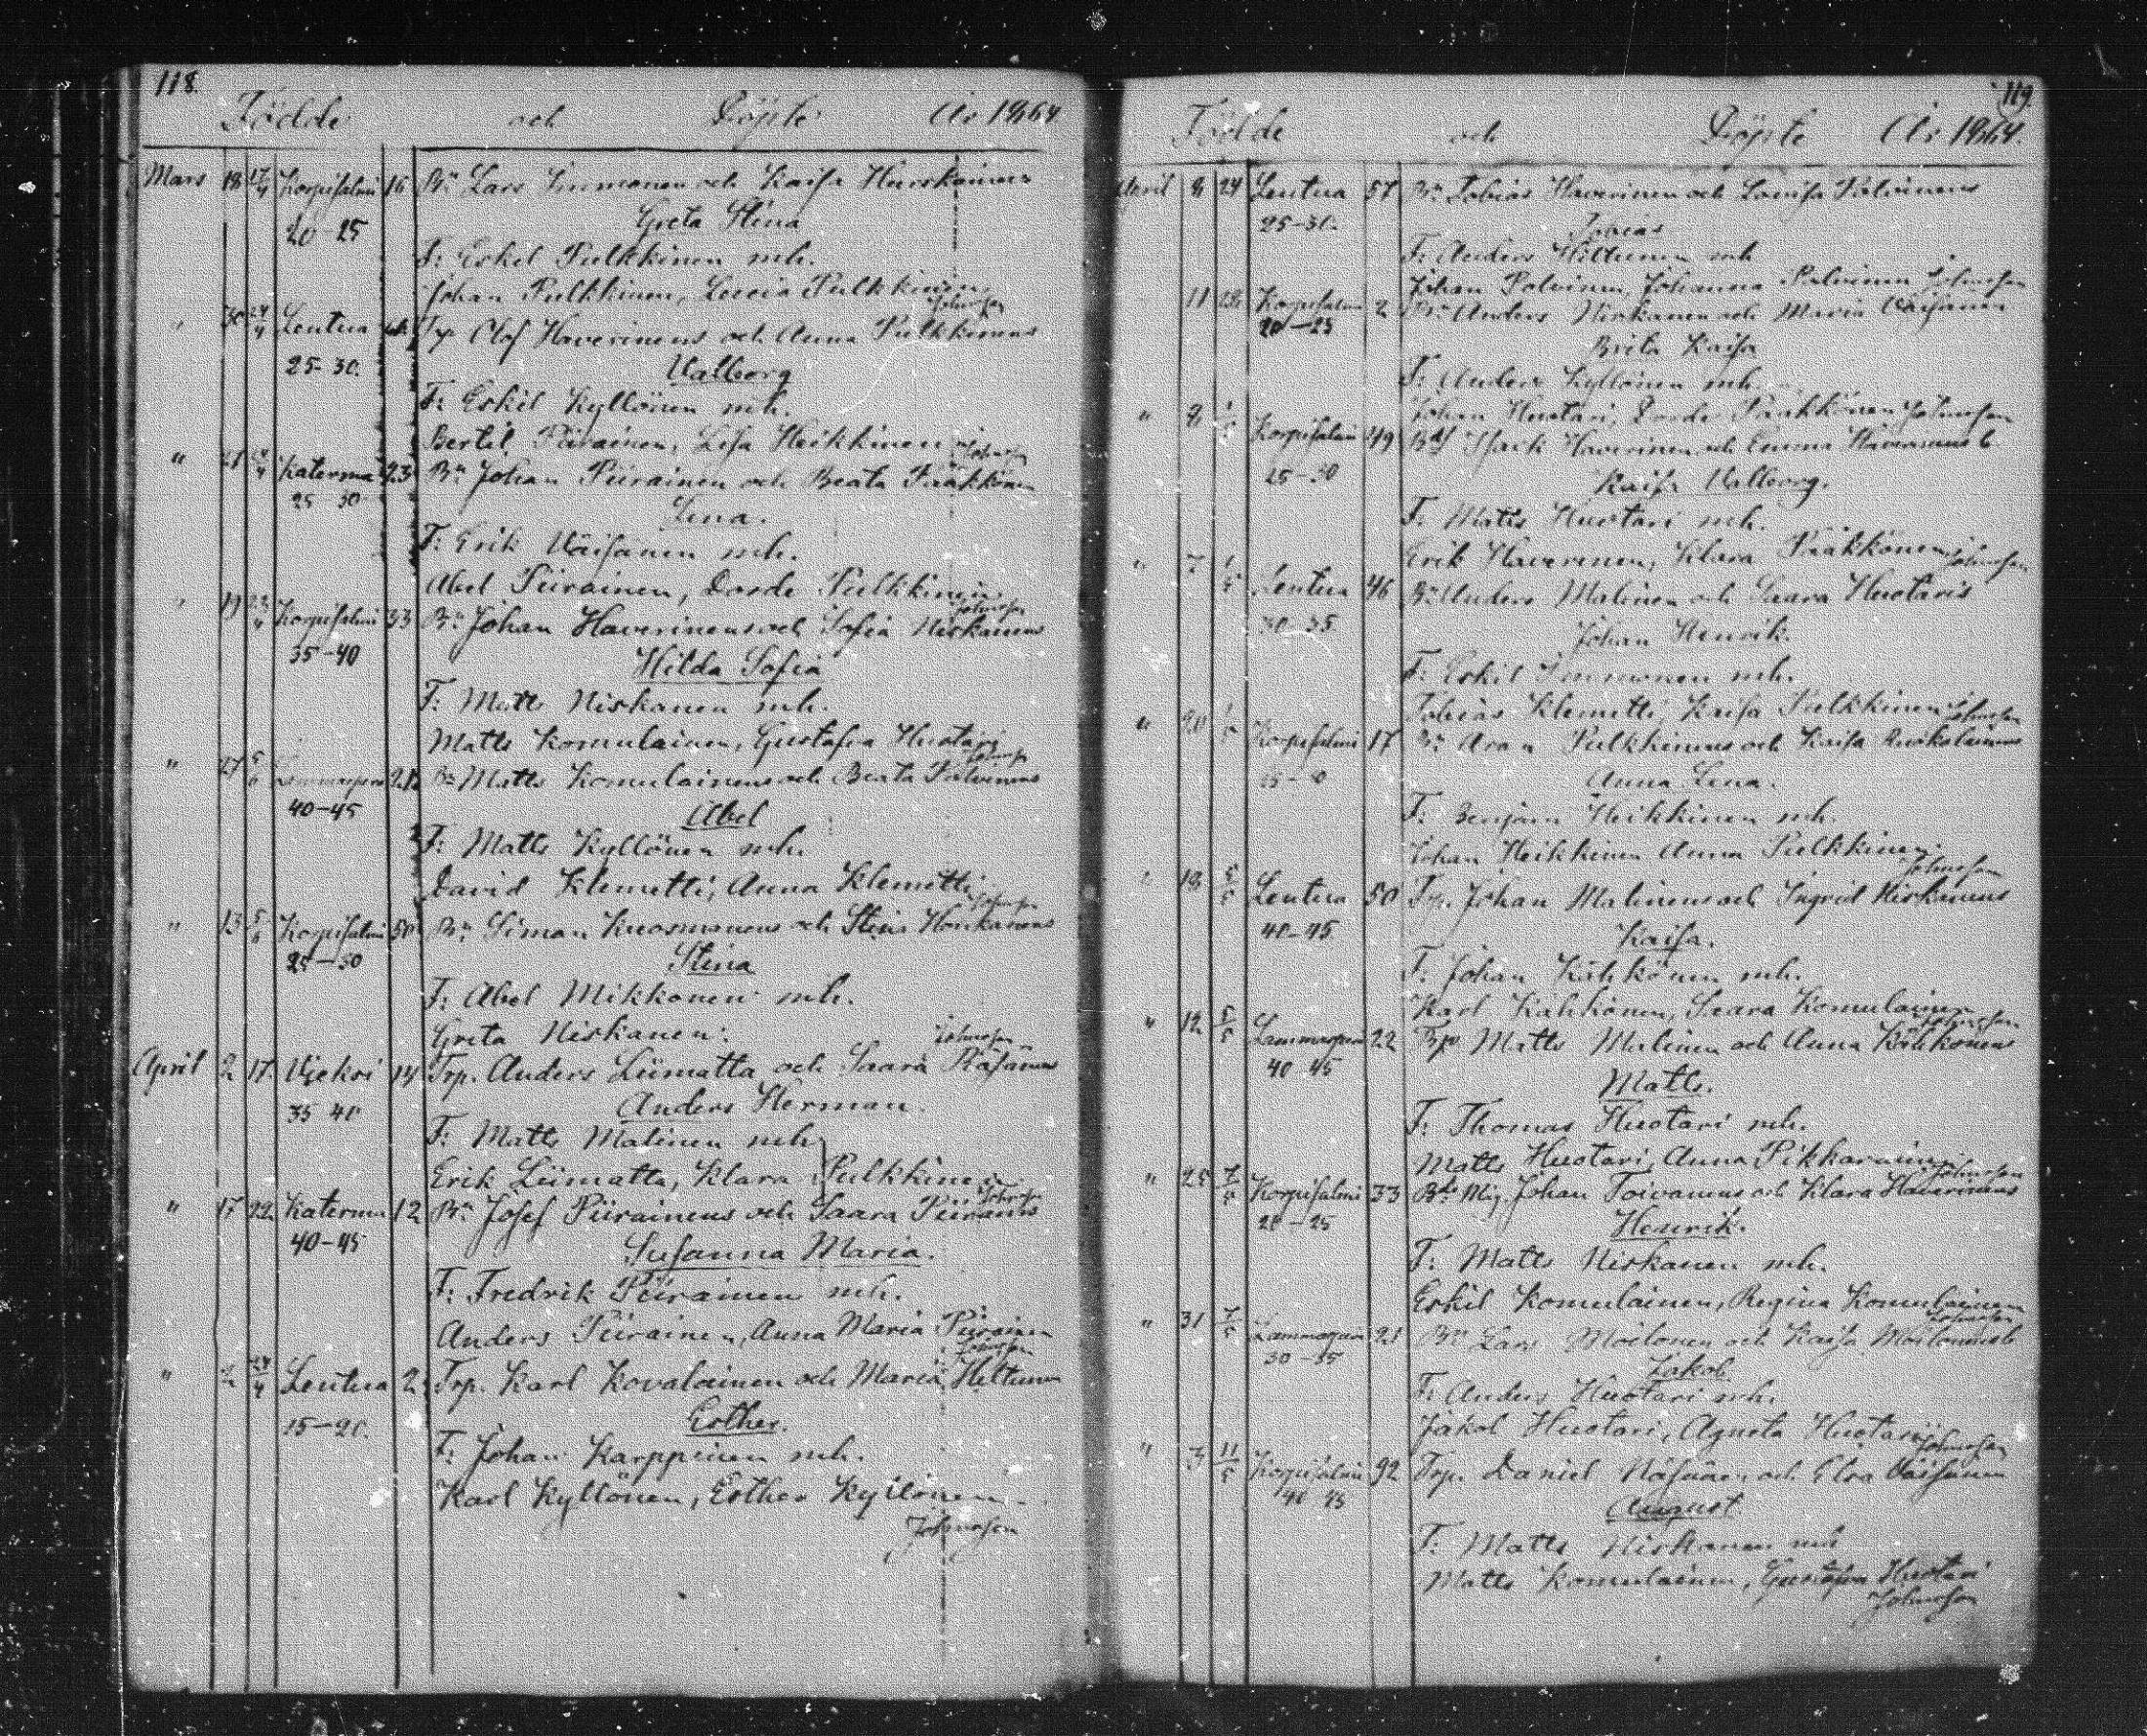 118.
Födde och Döpte År 1864
Mars 18 17/4 Korpisalmi 16 Bn Lars Immonen och Kaisa Hurskainen
20-25 Greta Stina
F: Eskel Pulkkinen mh.
Johan Pulkkinen, Lovisa Pulkkinen
Johnsson
" 30 24/4 Lentua Trp Olof Haverinens och Anna Pulkkinens
25-30. Valborg
F: Eskil Kyllönen mh.
Bertil Piirainen, Lisa Heikkinen
Johnsson
" 21 Katerma 23 Bn Johan Piirainen och Beata Pääkkönen
25-30 Lena.
F: Erik Väisänen mh.
Abel Piirainen, Dorde Pulkkinen
Johnsson
" 19 Korpisalmi 33 Bn Johan Haverinens och Sofia Niskanens
35-40 Hilda Sofia
F: Matts Niskanen mh.
Matts Komulainen, Gustafva Huotari
Johnsson
" 27 Lammasperä Bn Matts Komulainens och Beata Palvinens
40-45 Abel
F: Matts Kyllönen mh.
David Klemetti, Anna Klemetti
Johnsson
" 13 Korpisalmi 50 Bn Simon Kuosmanens och Stina Honkanens
25-30 Stina
F: Abel Mikkonen mh.
Greta Niskanen.
Johnsson
April 2 17. Viekki 14 Trp. Anders Liimatta och Saara
35 40 Anders Herman.
F: Matts Malinen mh.
Erik Liimatta, Klara Pulkkinen
Johnsson
" 17 22 Katerma 12 Bn Josef Piirainens och Saara
40-45 Susanna Maria.
F: Fredrik Piirainen mh.
Anders Piirainen, Anna Maria Piirainen
Johnsson
" 24/4 Lentua Trp. Karl Kovalainen och Maria Hiltunen
15-20. Esther.
F: Johan Karppinen mh.
Karl Kyllönen, Esther Kyllönen
Johnsson
119.
Födde och Döpte År 1864.
April 8 24 Lentua 57 Bn Tobias Haverinen och Lovisa Palvinens
25-30. Tobias
F: Anders Hiltunen mh
Johan Palvinen, Johanna Palvinen Johnsson
11 Korpisalmi 2 Bn Anders Niskanen och Maria Väisänen
20-25 Brita Kaisa
F: Anders Kyllönen mh.
Johan Huotari, Dorde Pääkkönen Johnsson
" 2 Korpisalmi 49 Isack Haverinen och Emma Haverinens
25-30 Kaisa Valborg.
F: Matts Huotari mh.
Erik Haverinen, Klara Pääkkönen Johnsson
" 7 1/5 Lentua 46 Bn Anders Malinen och Saara Huotaris
30-35 Johan Henrik.
F: Eskil Immonen mh.
Tobias Klemetti, Kaisa Pulkkinen Johnsson
" Korpisalmi 17 Bn Pulkkinens och Kaisa
Anna Lena.
F: Benjam Heikkinen mh.
Johan Heikkinen Anna Pulkkinen
Johnsson
18 5/5 Lentua 50 Trp. Johan Malinens och Ingrid Niskanens
40-45. Kaisa.
F: Johan Kähkönen mh.
Karl Kähkönen, Saara Komulainen
Johnsson
" 12 5/5 Lammasperä 22 Matts Malinen och Anna Kähkönens
40 45 Matts.
F: Thomas Huotari mh.
Matts Huotari, Anna Pikkarainen
Johnsson
" 25 7/5 Korpisalmi 33 Johan Toivanens och Klara Haverinens
20-25 Henrik.
F: Matts Niskanen mh.
Eskil Komulainen, Regina Komulainen
Johnsson
" 31 7/5 Lammasperä 21 Bn Lars Moilanen och Kaisa
30-35 Jakob.
F: Anders Huotari mh.
Jakob Huotari, Agneta Huotari Johnsson
" 3 11/5 Korpisalmi 92 Trp. Daniel och Elsa Väisänen
40-45 August.
F: Matts Niskanen mh
Matts Komulainen, Gustafva Huotari
Johnsson